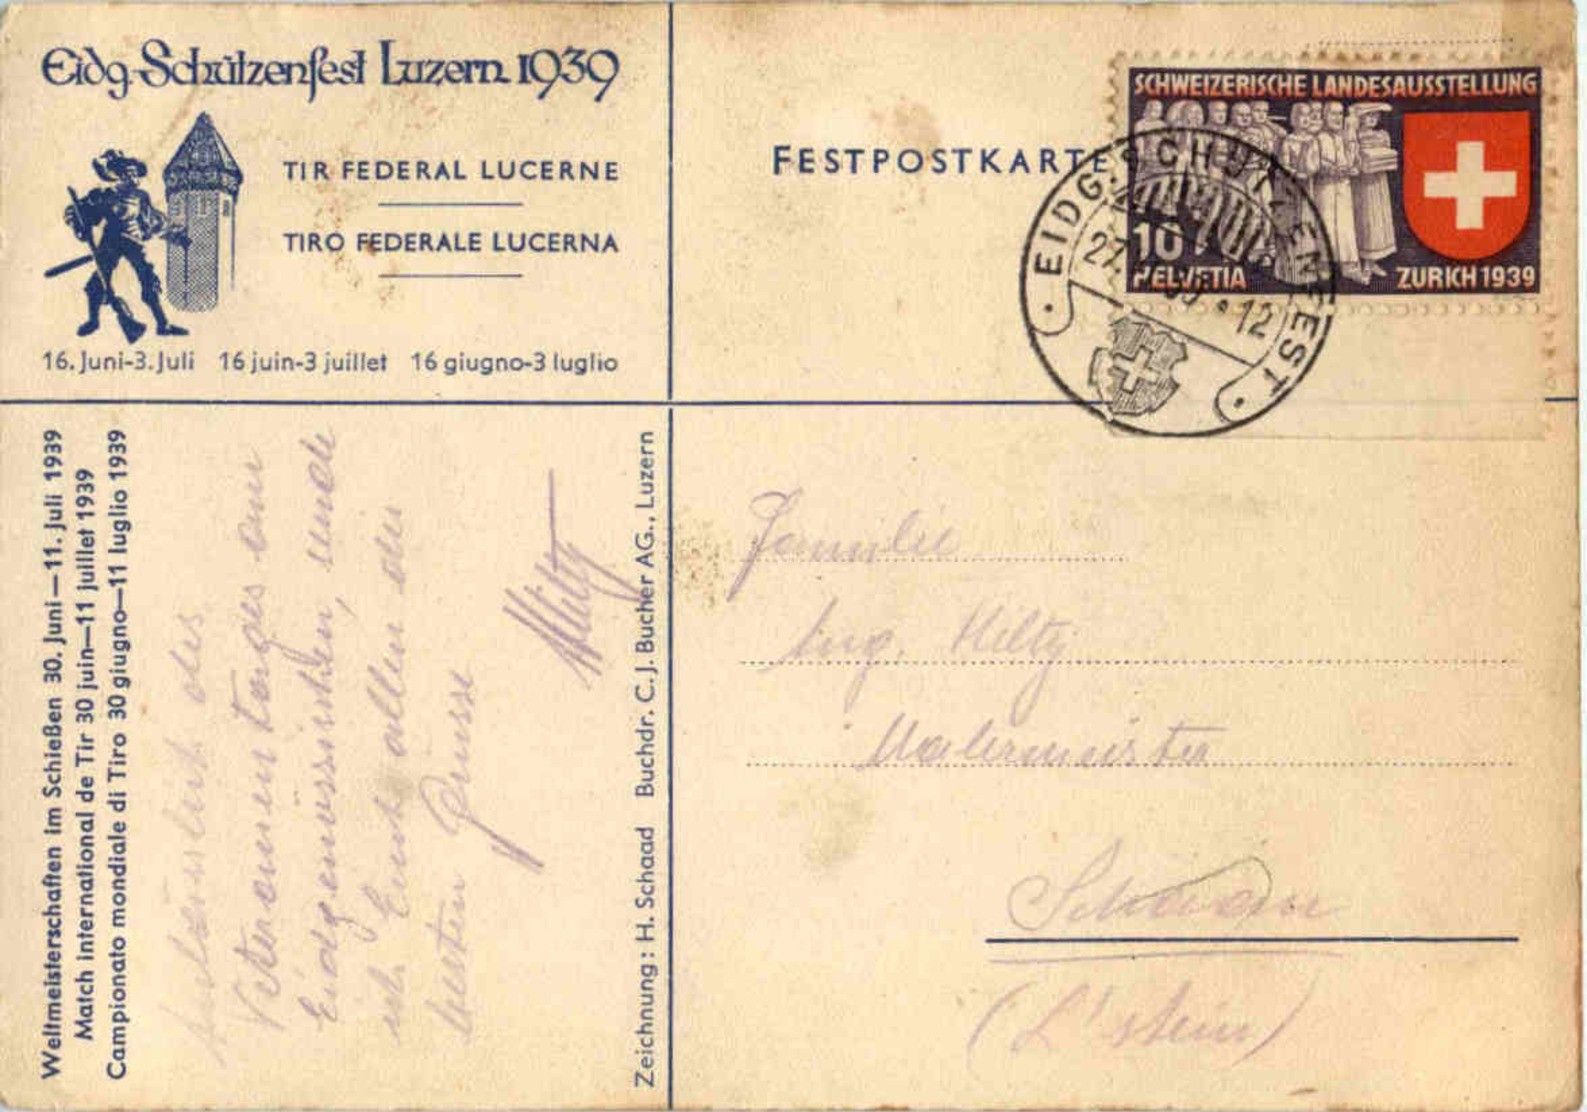 Eidg. Schützenfest Luzern 1939
TIR FEDERAL LUCERNE
TIRO FEDERALE LUCERNA
16. Juni-3. Juli 16 juin-3 juillet 16 giugno-3 luglio
FESTPOSTKARTE
SCHWEIZERISCHE LANDESAUSSTELLUNG
10
HELVETIA
ZÜRICH 1939
· EIDG. SCHÜTZENFEST ·
27. 39. 12
Weltmeisterschaften im Schießen 30. Juni—11. Juli 1939
Match international de Tir 30 juin—11 juillet 1939
Campionato mondiale di Tiro 30 giugno—11 luglio 1939
des
Veteranentages am
Eidgenössischen, sende
ich Euch allen die
besten Grüsse
Hilty
Zeichnung: H. Schaad Buchdr. C. J. Bucher AG., Luzern
Familie
Aug. Hilty
Malermeister
Schaan
(L'stein)